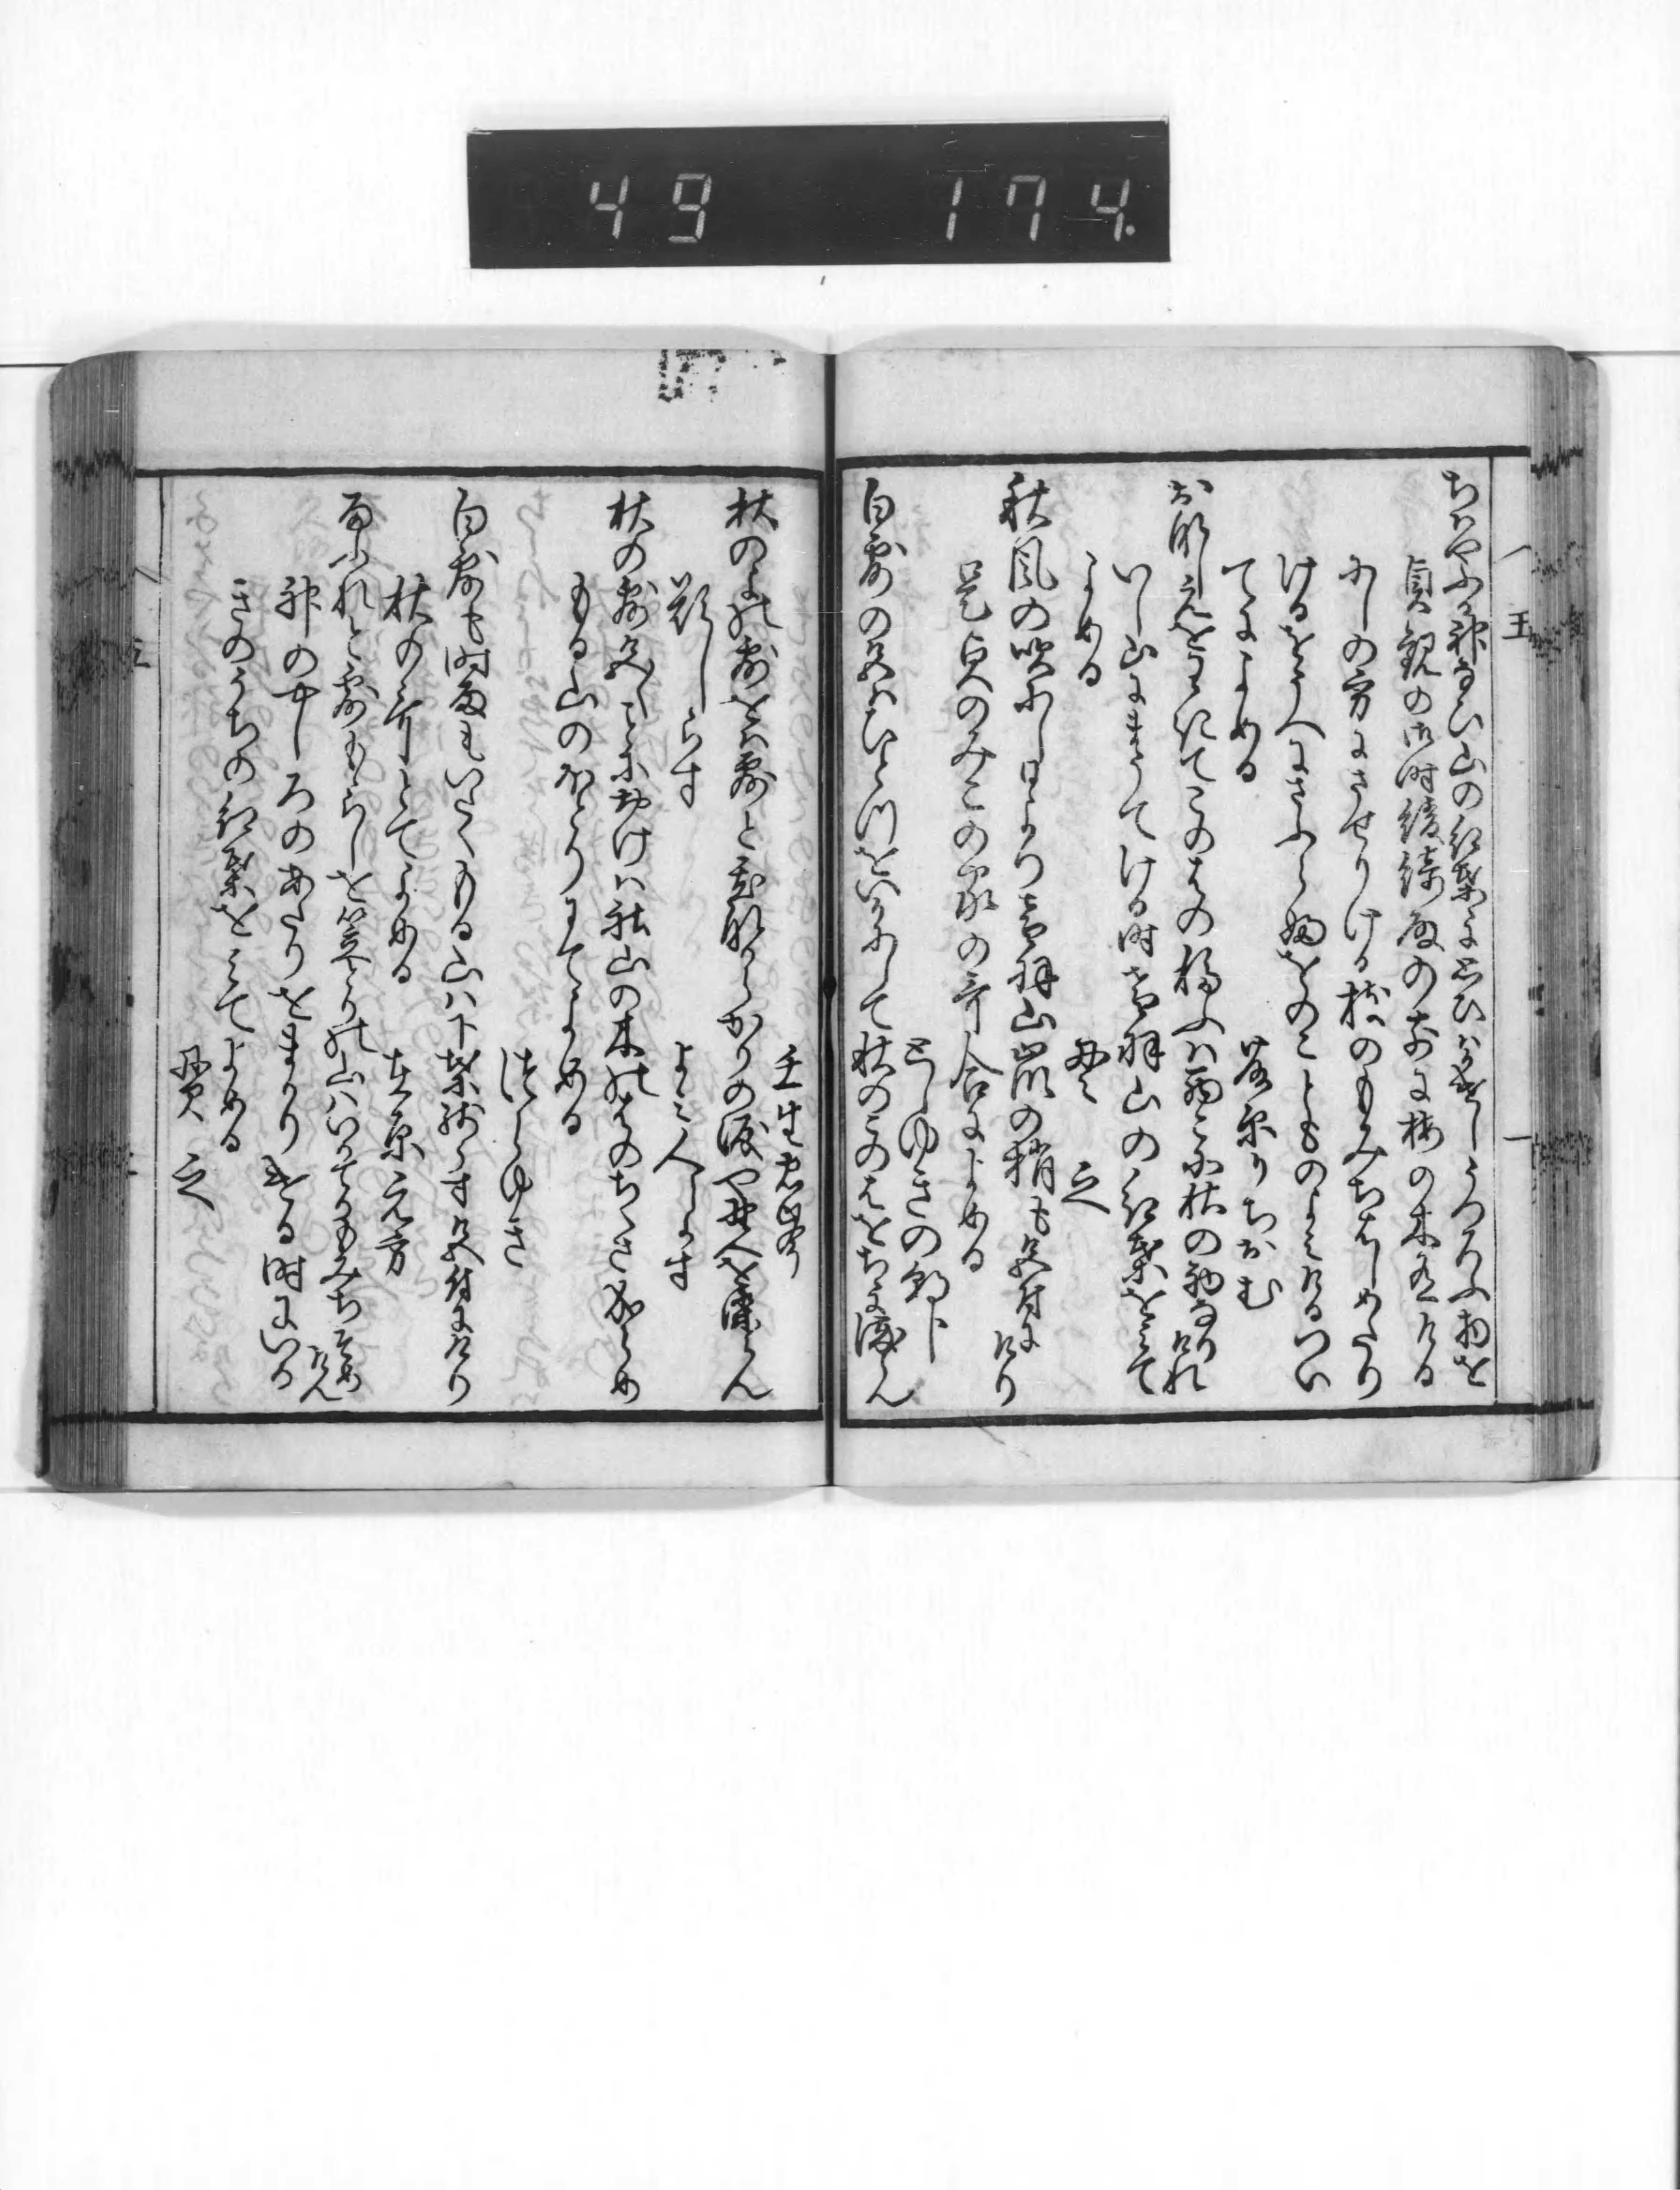 49 174.
ちはやふる神なひ山の紅葉に思ひはかけしうつろふ物を
貞観の御時綾綺殿の前に梅の木有ける
にしの方にさせりける枝のもみちはしめたり
けるをうへにさふらふをのこともの よみけるつい
てによめる
藤原かちおむ
おなしえをわきてこのはの移ふは西こそ秋の初なりけれ
いし山にまうてける時音羽山の紅葉をみて
よめる
貫之
秋風の吹にし日より音羽山峯の梢も色付にけり
是貞のみこの家の哥合によめる
としゆきの朝臣
白露の色はひとつをいかにして秋のこのはをちゝに染らん
壬生忠岑
秋のよの露をは露と置なからかりの涙や野へを染らん
題しらす
よみ人しらす
秋の露色〳〵ことにおけはこそ山の木のはのちくさなるらめ
もる山のほとりにてよめる
つらゆき
白露も時雨もいたくもる山は下葉残らす色付にけり
秋の哥とてよめる
在原元方
雨ふれと露ももらしを笠とりの山はいかてかもみちそめけん
神のやしろのあたりをまかりける時にいか
きのうちの紅葉をみてよめる
貫之